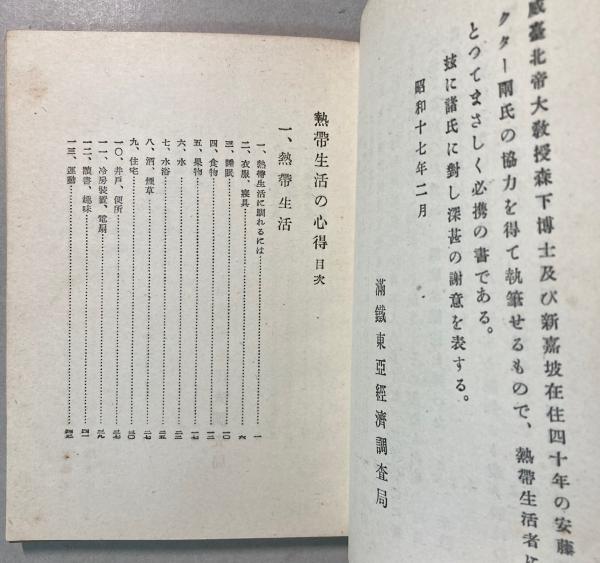 威臺北帝大教授森下博士及び新嘉坡在住四十年の安藤
クター兩氏の協力を得て執筆せるもので、熱帶生活者に
とつてまさしく必携の書である。
玆に諸氏に對し深甚の謝意を表する。
昭和十七年二月
滿鐵東亞經濟調査局
熱帶生活の心得 目次
一、熱帶生活
一、熱帶生活に馴れるには……一
二、衣服、寢具……六
三、睡眠……一〇
四、食物……一二
五、果物……一七
六、水……二三
七、水浴……二五
八、酒、煙草……二七
九、住宅……三〇
一〇、井戸、便所……三七
一一、冷房裝置、電扇……三九
一二、讀書、趣味……四一
一三、運動……四三